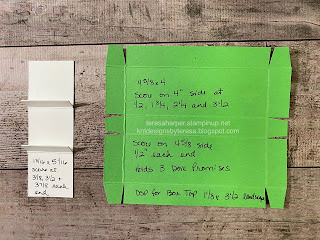 4 5/8 x 4
Score on 4" side at
1/2, 1 3/4, 2 1/4 and 3 1/2
teresaharper.stampinup.net
kritdesignsbyteresa.blogspot.com
Score on 4 5/8 side
1/2" each end
Holds 3 Dove Promises
DSP for Box Top 1 1/8 x 3 1/2
score at
3/8, 3/2 +
each
end